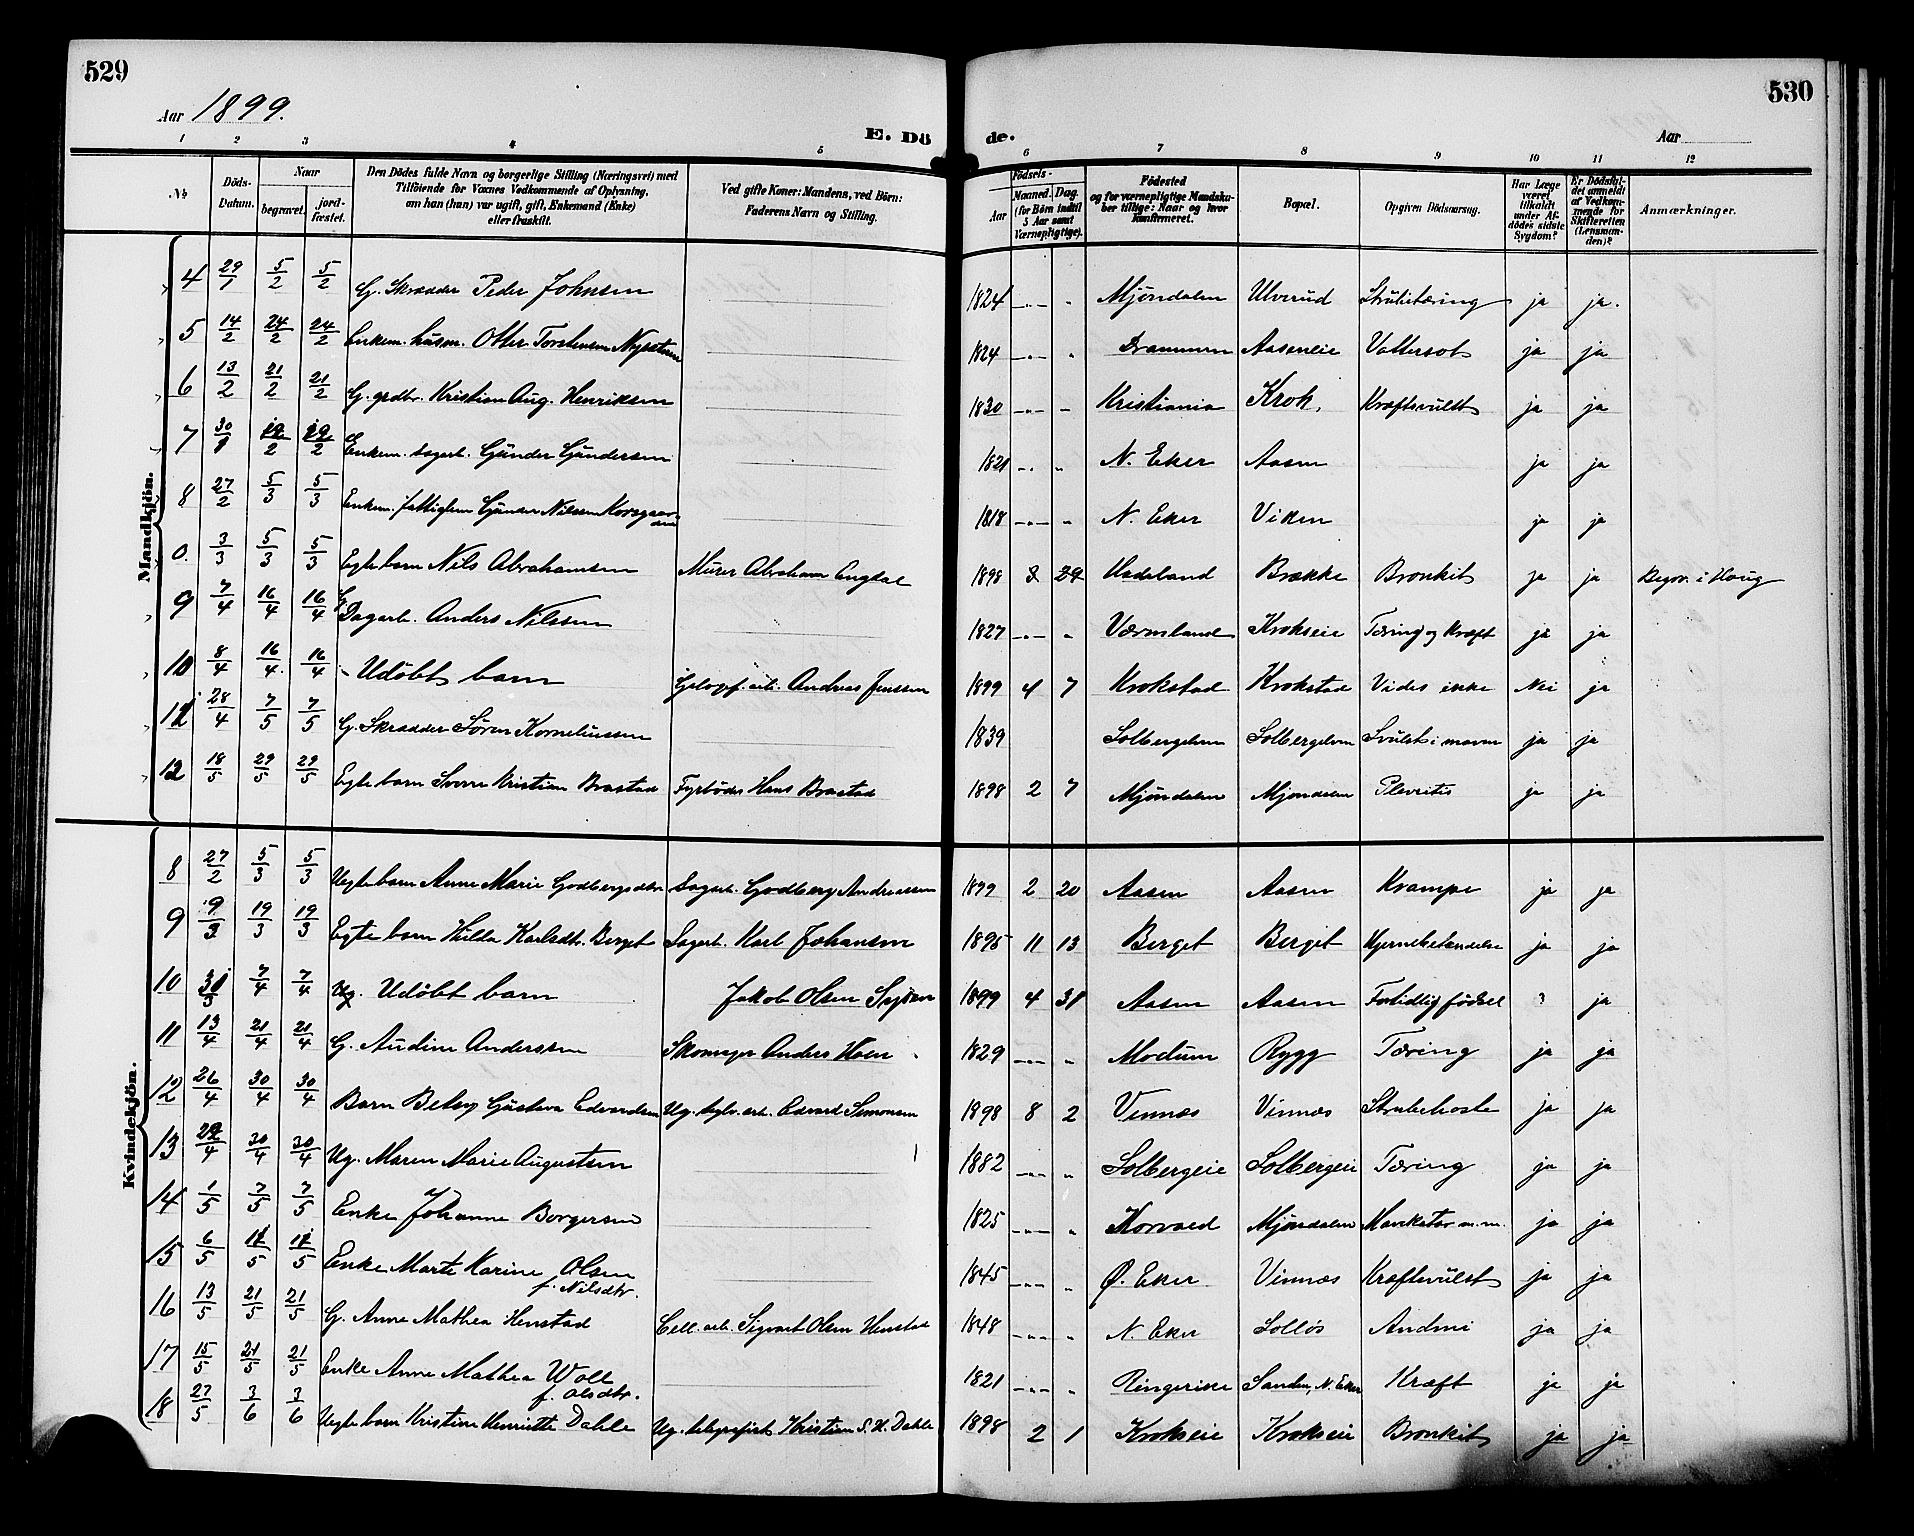 529
530
Aar 1899.
Aar
E. Dö
de.
1 2 3 4 5 6 7 8 9 10 11 12
№ Döds-Datum. Naar begravet. jordfæstet. Den Dödes fulde Navn og borgerlige Stilling (Næringsvei) med Tilföiende for Voxnes Vedkommende af Oplysning, om han (hun) var ugift, gift, Enkemand (Enke) eller fraskilt. Ved gifte Koner: Mandens, ved Börn: Faderens Navn og Stilling. Födsels- Aar Maaned. Dag. (for Börn indtil 5 Aar samt Værnepligtige). Födested og for værnepligtige Mandskaber tillige: Naar og hvor konfirmeret. Bopæl. Opgiven Dödsaarsag. Har Læge været tilkaldt under Afdödes sidste Sygdom? Er Dödsfaldet anmeldt af Vedkommende for Skifteretten (Lensmanden)? Anmærkninger.
Mandkjön.
4 29/1 5/2 5/2 G. Skrædder Peder Johnsen 1824 -"- " Mjöndalen Ulverud Strubetæring ja ja.
5 14/2 24/2 24/2 Enkem. husm. Otter Torstensen Nystuen 1824 -"- " Drammen Aaseneie Vattersot ja ja
6 13/2 21/2 21/2 G. grdbr. Kristian Aug. Henriksen 1830 -"- " Kristiania Krok. Kræftsvulst ja ja
7 30/1 19/2 19/2 Enkem. dagarb. Gunder Gundersen 1821 -"- " N. Eker Aasen ja ja
8 27/2 5/3 5/3 Enkem. fattiglem Gunder Nilsen 1818 -"- " N. Eker Viken ja ja
0. 3/3 5/3 5/3 Egte barn Nils Abrahamsen Murer Abraham Engdal 1898 3 29 Hadeland Brække Bronkit ja ja Begr. i Houg
9 7/4 16/4 16/4 G. Dagarb. Anders Nilsen 1827 -"- " Værmland Krokseie Tæring og Kræft ja ja
10 8/4 16/4 16/4 - Udöbt barn Andreas Jenssen 1899 4 7 Krokstad Krokstad Vides ikke Nei ja
11 28/4 7/5 7/5 G. Skrædder Sören Korneliussen 1839 Solbergelven Solbergelven Svulst i maven ja ja
12 18/5 29/5 29/5 Egte barn Sverre Kristian Brastad Fyrböder Hans Brastad 1898 2 7 Mjöndalen Mjöndalen Plevritis ja ja
Kvindekjön.
8 27/2 5/3 5/3 Uegte barn Anne Marie Godbergsdtr Dagarb. Godberg Andreassen 1899 2 20 Aasen Aasen Krampe ja ja
9 9/3 19/3 19/3 Egte barn Hilda Karlsdtr. Berget Dagarb. Karl Johansen 1895 11 13 Berget Berget Hjernebetændelse ja ja
10 31/3 7/4 7/4 Udöbt barn Jakob Olsen 1899 4 31 Aasen Aasen Fortidlig födsel ? ja
11 13/4 21/4 21/4 G. Audine Anderssen Skomager Anders Hoen 1829 -"- " Modum Rygg Tæring ja ja
12 26/4 30/4 30/4 Barn Betsy Gustava Edvardsen Ug. Edvard Simonsen 1898 8 2 Vinnæs Vinnæs Strubehoste ja ja
13 22/4 30/4 30/4 Ug. Maren Marie Augustsen 1882 -"- " Solbergeie Solbergeie Tæring ja ja
14 1/5 7/5 7/5 Enke Johanne Borgersen 1825 -"- " Mjöndalen m. m. ja ja
15 6/5 11/5 11/5 Enke Marte Karine Olsen f. Nilsdtr. 1845 -"- " Ø. Eker Vinnæs Kræftsvulst ja ja
16 13/5 21/5 21/5 G. Anne Mathea Henstad Cell. arb. Sigvart Olsen Henstad 1848 -"- " N. Eker Sollös ja ja
17 15/5 21/5 21/5 Enke Anne Mathea Woll f. Olsdtr. 1821 -"- " Ringerike Sanden, N. Eker Kræft ja ja
18 27/5 3/6 3/6 Uegte barn Kristine Henriette Dahle Ug. telegrafist Kristian S. H. Dahle 1898 2 1 Krokseie Krokseie Bronkit ja ja